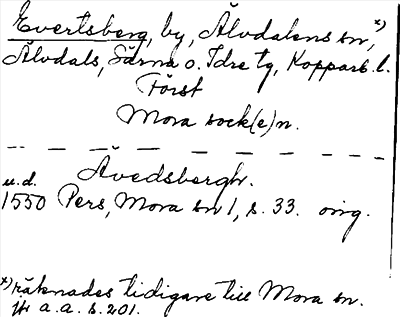 Evertsberg, by, Älvdalens sn, x)
Älvdals, Särna o. Idre tg, Kopparb. l.
Först
Mora sock(e)n.
Åvedsbergh.
u.d.
1550 Pers, Mora sn 1, s. 33. orig.
x) räknades tidigare till Mora sn.
jfr a.a. s. 201.